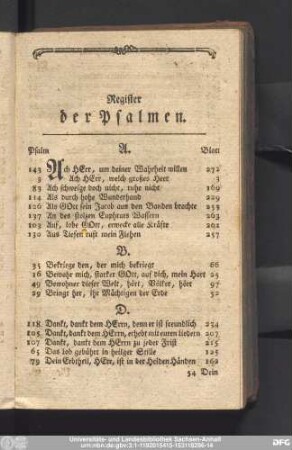 Register
der Psalmen.
Psalm A. Blatt
143 Ach HErr, um deiner Wahrheit willen 272
3 Ach HErr, welch großes Heer 3
83 Ach schweige doch nicht, ruhe nicht 169
114 Als durch hohe Wunderhand 229
126 Als GOtt sein Jacob aus den Banden brachte 255
137 An des stolzen Euphrats Wassern 263
103 Auf, lobe GOtt, erwecke alle Kräfte 201
130 Aus Tiefen ruft mein Flehen 257
B.
35 Bekriege den, der mich bekriegt 66
16 Bewahr mich, starker GOtt, auf dich, mein Hort 25
49 Bewohner dieser Welt, hört, Völker, hört 97
29 Bringt her, ihr Mächtigen der Erde 52
D.
118 Dankt, dankt dem HErrn, denn er ist freundlich 234
105 Dankt, dankt dem HErrn, erhebt mit euren liedern 207
107 Dankt, dankt dem HErrn zu jeder Frist 215
65 Das lob gebührt in heilger Stille 125
79 Dein Erbtheil, HErr, ist in der Heiden Händen 162
S4 Dein
Universitäts- und Landesbibliothek Sachsen-Anhalt
urn:nbn:de:gbv:3:1-1192015415-153116286-14